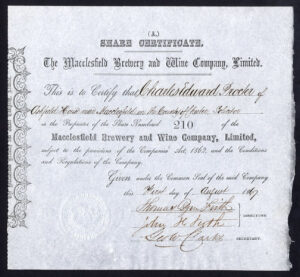 (A.)
SHARE CERTIFICATE.
The Macclesfield Brewery and Wine Company, Limited.
This is to Certify that Charles Edward Procter of
House near Macclesfield in the County of Chester
is the Proprietor of the Share Numbered 210 of the
Macclesfield Brewery and Wine Company, Limited,
subject to the provisions of the Companies' Act, 1862, and the Conditions
and Regulations of the Company.
Given under the Common Seal of the said Company
this First day of August 1867
Thomas
DIRECTORS.
John H.
Geo W. Clarke
SECRETARY.